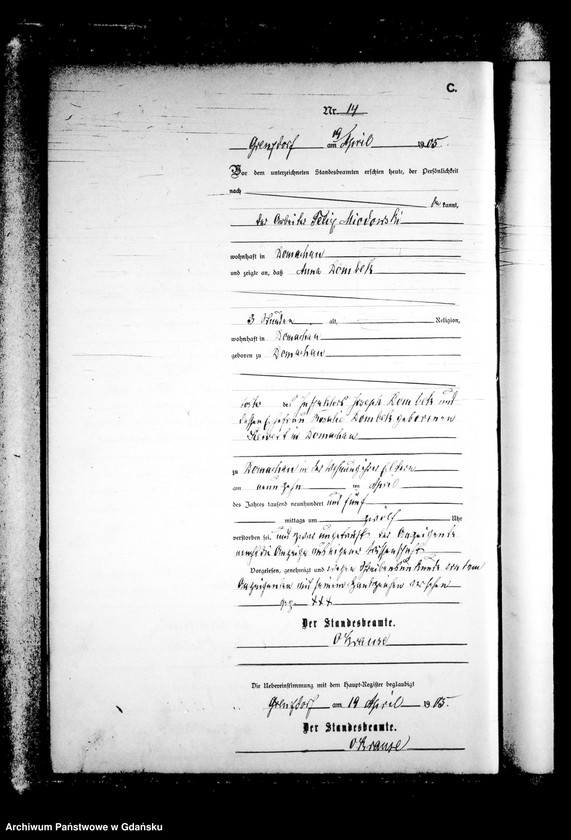 C.
Nr. 14
am 19 April 1905.
Vor dem unterzeichneten Standesbeamten erschien heute, der Persönlichkeit
nach
kannt,
der Arbeiter Felix Miodowski
wohnhaft in Domachau
und zeigte an, daß Anna Dombek
3 Stunden alt, Religion,
wohnhaft in Domachau
geboren zu Domachau
Tochter des Joseph Dombek und
dessen Ehefrau Rosalie Dombek geborenen
in Domachau
zu Domachau in der Wohnung ihrer Eltern
am neunzehn ten April
des Jahres tausend neunhundert und fünf
mittags um zwölf Uhr
verstorben sei, und zwar der Anzeigende
Vorgelesen, genehmigt und wegen Schreibensunkunde von dem
Anzeigenden mit seinem Handzeichen versehen
gez. +++
Der Standesbeamte.
O Krause
Die Uebereinstimmung mit dem Haupt-Register beglaubigt
am 19 April 1905.
Der Standesbeamte.
O Krause
Archiwum Państwowe w Gdańsku